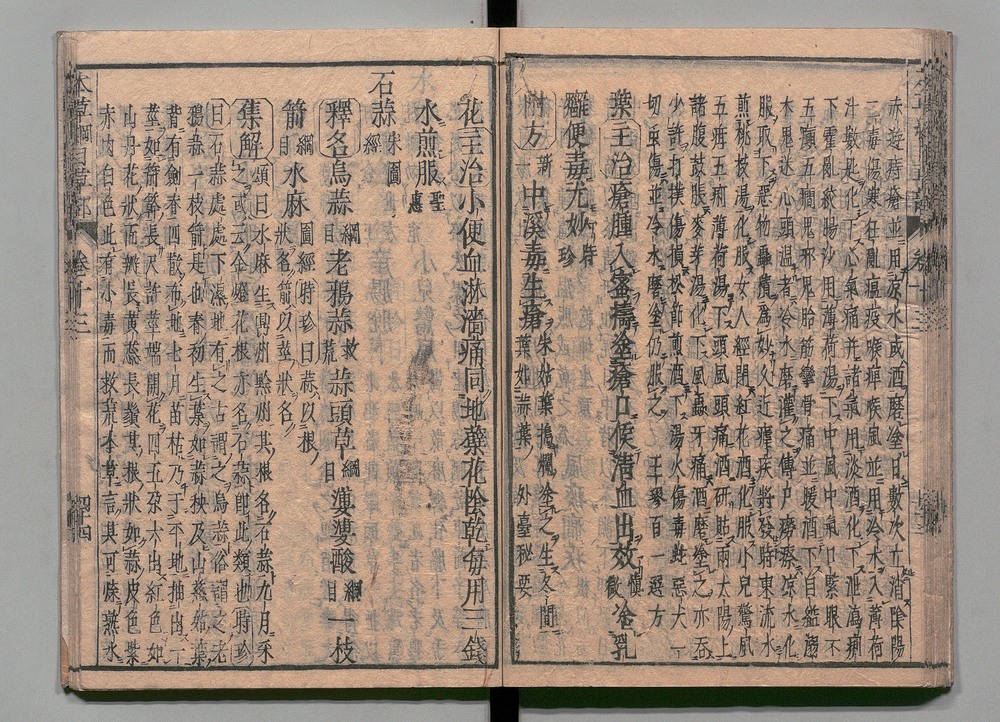 赤遊痔瘡並用凉水或酒磨塗日數次立消陰陽
二毒傷寒狂亂瘟疫喉痺喉風並用冷水入薄荷
汁數匙化下心氣痛并諸氣用淡酒化下泄瀉痢
下霍亂絞腸沙用薄荷湯下中風中氣口緊眼不
五癲五癇鬼邪鬼胎筋攣骨痛並暖酒下自縊溺
水鬼迷心頭溫者冷水磨灌之傳尸癆瘵凉水化
服取下惡物蟲積為妙久近瘧疾將發時東流水
煎桃枝湯化服女人經閉紅花酒化服小兒驚風
五疳五痢薄荷湯下頭風頭痛酒研貼兩太陽上
諸腹鼓脹麥芽湯化下風蟲牙痛酒磨塗之亦吞
少許打撲傷損松節煎酒下湯火傷毒蛇惡犬一
切蟲傷並冷水磨塗仍服之 王璆百一選方
葉主治瘡腫入蜜搗塗瘡口候清血出效慎微塗乳
癰便毒尤妙時珍
附方新一中溪毒生瘡朱姑葉搗爛塗之生冬間葉如蒜葉 外臺秘要
花主治小便血淋濇痛同地蘗花陰乾每用三錢
水煎服聖惠
石蒜宋圖經
釋名烏蒜綱目老鴉蒜救荒蒜頭草綱目婆婆酸綱目一枝
箭綱目水麻圖經時珍曰蒜以根狀名箭以莖狀名
集解頌曰水麻生鼎州黔州其根名石蒜九月采
之或云金燈花根亦名石蒜即此類也時珍
曰石蒜處處下濕地有之古謂之烏蒜俗謂之老
鴉蒜一枝箭是也春初生葉如蒜秧及山慈姑葉
背有劍脊四散布地七月苗枯乃于平地抽出一
莖如箭簳長尺許莖端開花四五朶六出紅色如
山丹花狀而瓣長黃蕊長鬚其根狀如蒜皮色紫
赤肉白色此有小毒而救荒本草言其可煠熟水
本草綱目草部 卷十三 四十四